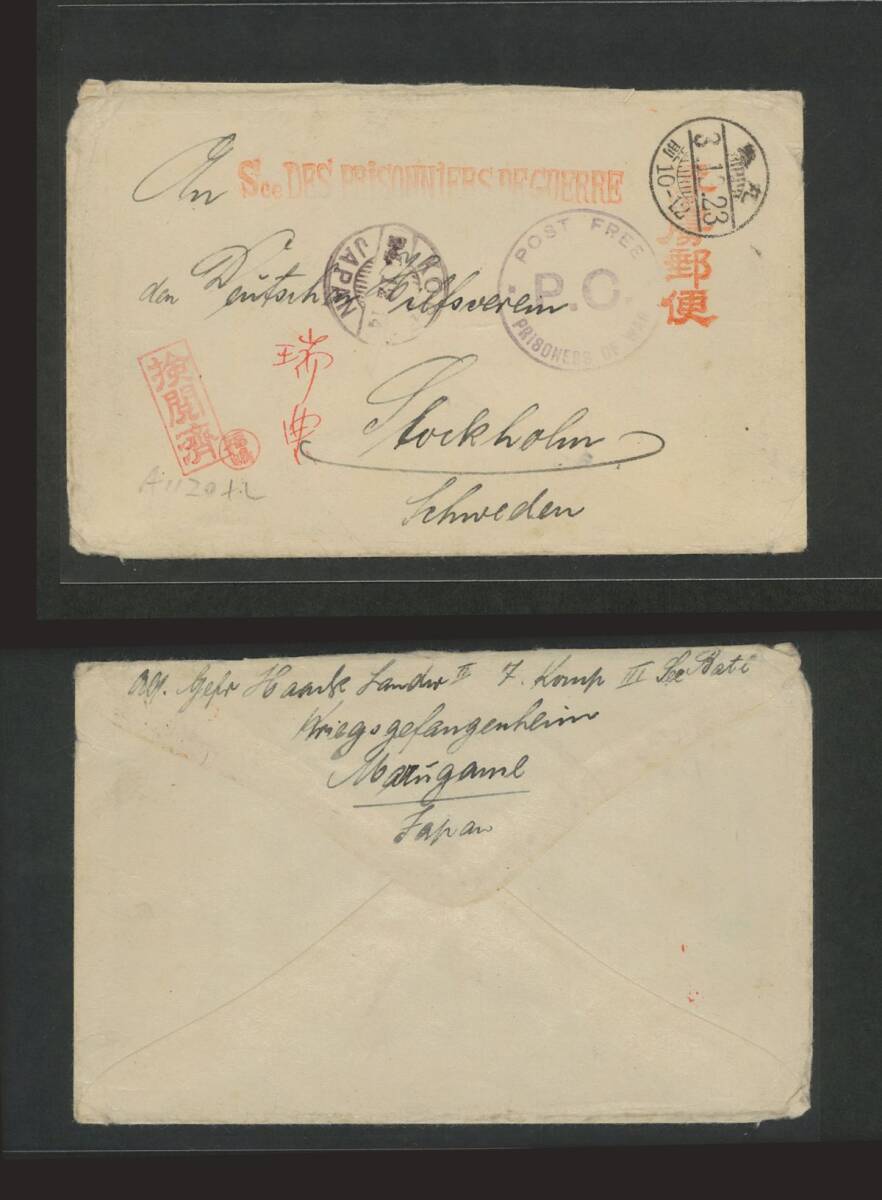 An
Sce DES PRISONNIERS DE GUERRE
3.12.23
den Deutschen Hilfsverein
JAPAN
POST FREE
P.C.
PRISONERS OF WAR
郵便
検閲済
瑞典
Stockholm
Schweden
Gefr Haack Landw II 7. Komp III See Batl
Kriegsgefangenheim
Marugame
Japan